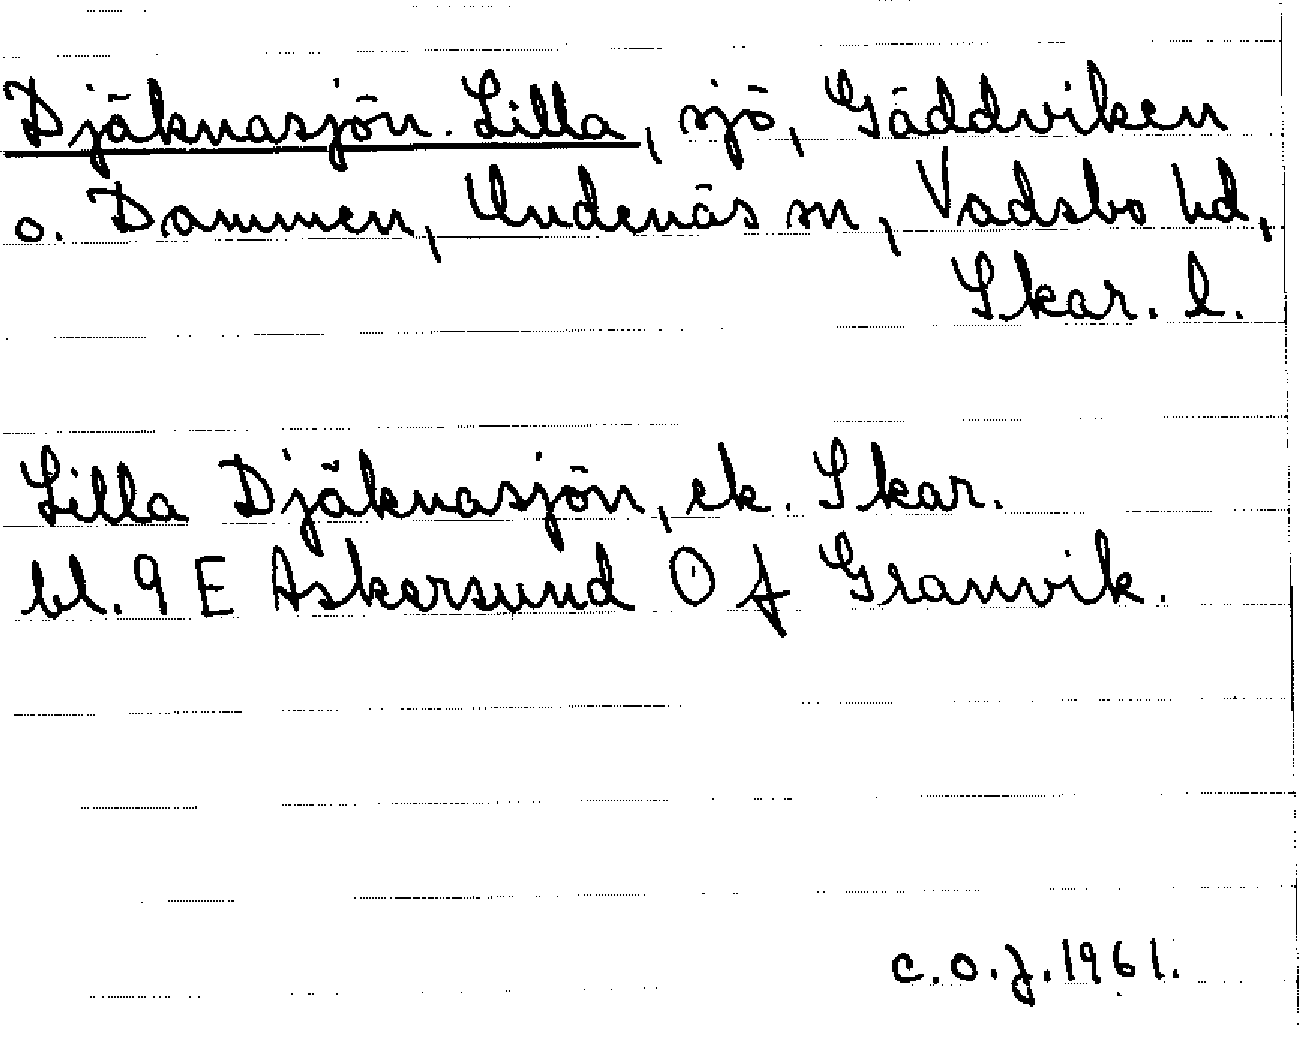 Djäknasjön. Lilla, sjö, Gäddviken
o. Dammen, Undenäs sn, Vadsbo hd,
Skar. l.
Lilla Djäknasjön, ek. Skar.
bl. 9 E Askersund O f Granvik.
c.o.j. 1961.